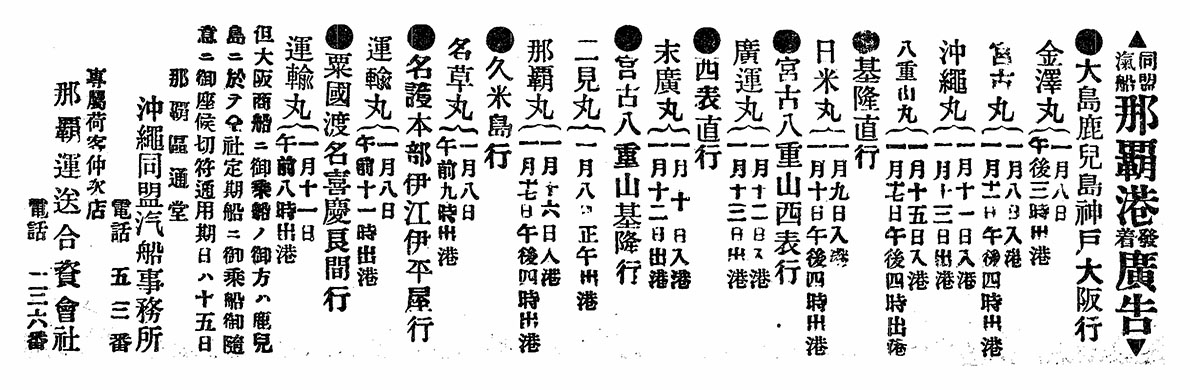 ▲同盟汽船那覇港發着廣告▼
●大島鹿兒島神戸大阪行
金澤丸 一月八日 午後三時出港
宮古丸 一月八日入港 一月十二日午後四時出港
沖繩丸 一月十一日入港 一月十三日出港
八重山丸 一月十五日入港 一月十七日午後四時出港
●基隆直行
日米丸 一月九日入港 一月十日午後四時出港
●宮古八重山西表行
廣運丸 一月十二日入港 一月十三日出港
●西表直行
末廣丸 一月十日入港 一月十二日出港
●宮古八重山基隆行
二見丸 一月八日正午出港
那覇丸 一月十六日入港 一月十七日午後四時出港
●久米島行
名草丸 一月八日 午前九時出港
●名護本部伊江伊平屋行
運輸丸 一月八日 午前十一時出港
●粟國渡名喜慶良間行
運輸丸 一月十一日 午前八時出港
但大阪商船ニ御乘船ノ御方ハ鹿兒
島ニ於テ仝社定期船ニ御乘船御隨
意ニ御座候切符通用期日ハ十五日
那覇區通堂
沖繩同盟汽船事務所
電話 五三番
專屬荷客仲次店
那覇運送合資會社
電話 一三六番